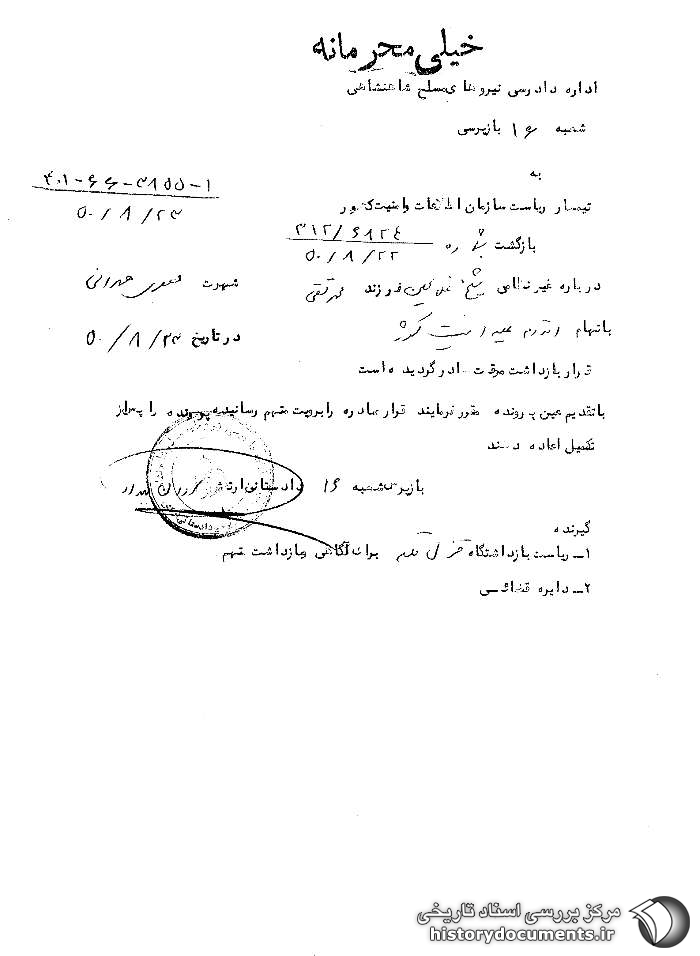 خیلی محرمانه
اداره دادرسی نیروهای مسلح شاهنشاهی
شعبه ۱۶ بازپرسی
به
۴۰۱-۶۶-۳۸۵۵-۱
۵۰/۸/۲۳
تیمسار ریاست سازمان اطلاعات و امنیت کشور
بازگشت بشماره ۳۱۲/۶۸۲۴
۵۰/۸/۲۲
درباره غیرنظامی شیخ غلامحسین فرزند محمدتقی شهرت
باتهام اقدام علیه امنیت کشور در تاریخ ۵۰/۸/۲۳
قرار بازداشت موقت صادر گردیده است
با تقدیم عین پرونده مقرر فرمایند قرار صادره را برویت متهم رسانیده پرونده را پس از
تکمیل اعاده دهند
بازپرس شعبه ۱۶ دادستانی ارتش
گیرنده
۱ــ ریاست بازداشتگاه قزل قلعه برای آگاهی و بازداشت متهم
۲ــ دایره قضائی
مرکز بررسی اسناد تاریخی
historydocuments.ir